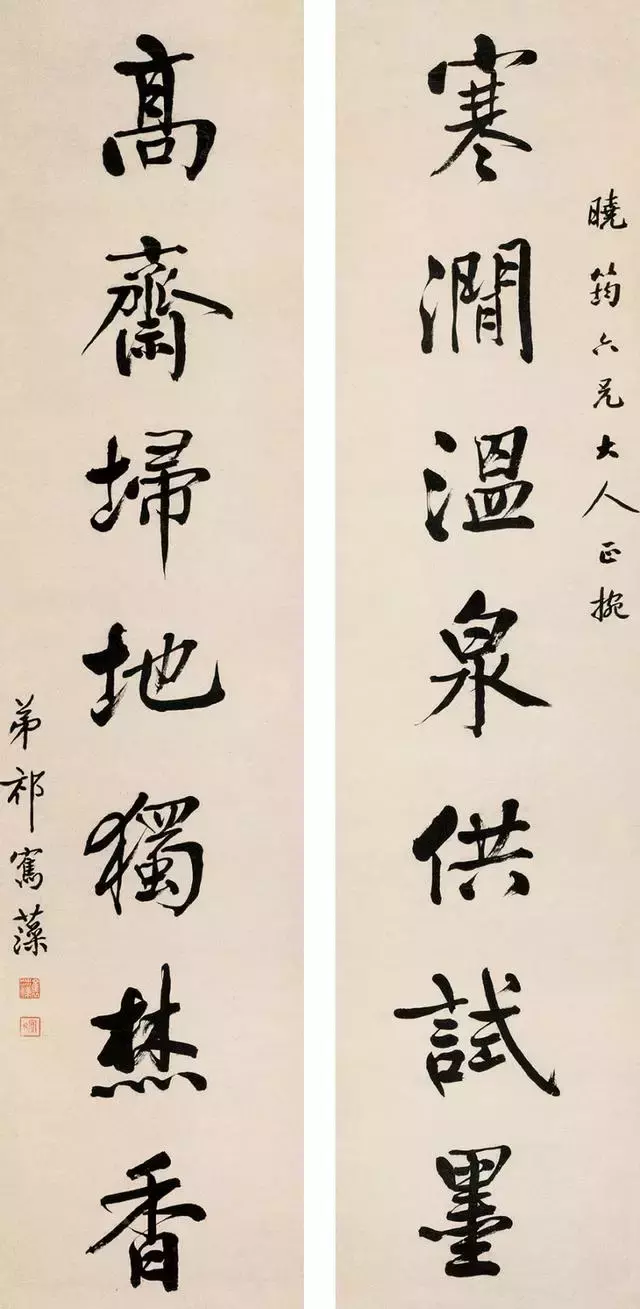 曉筠六兄大人正捥
寒澗溫泉供試墨
高齋埽地獨焚香
弟祁寯藻